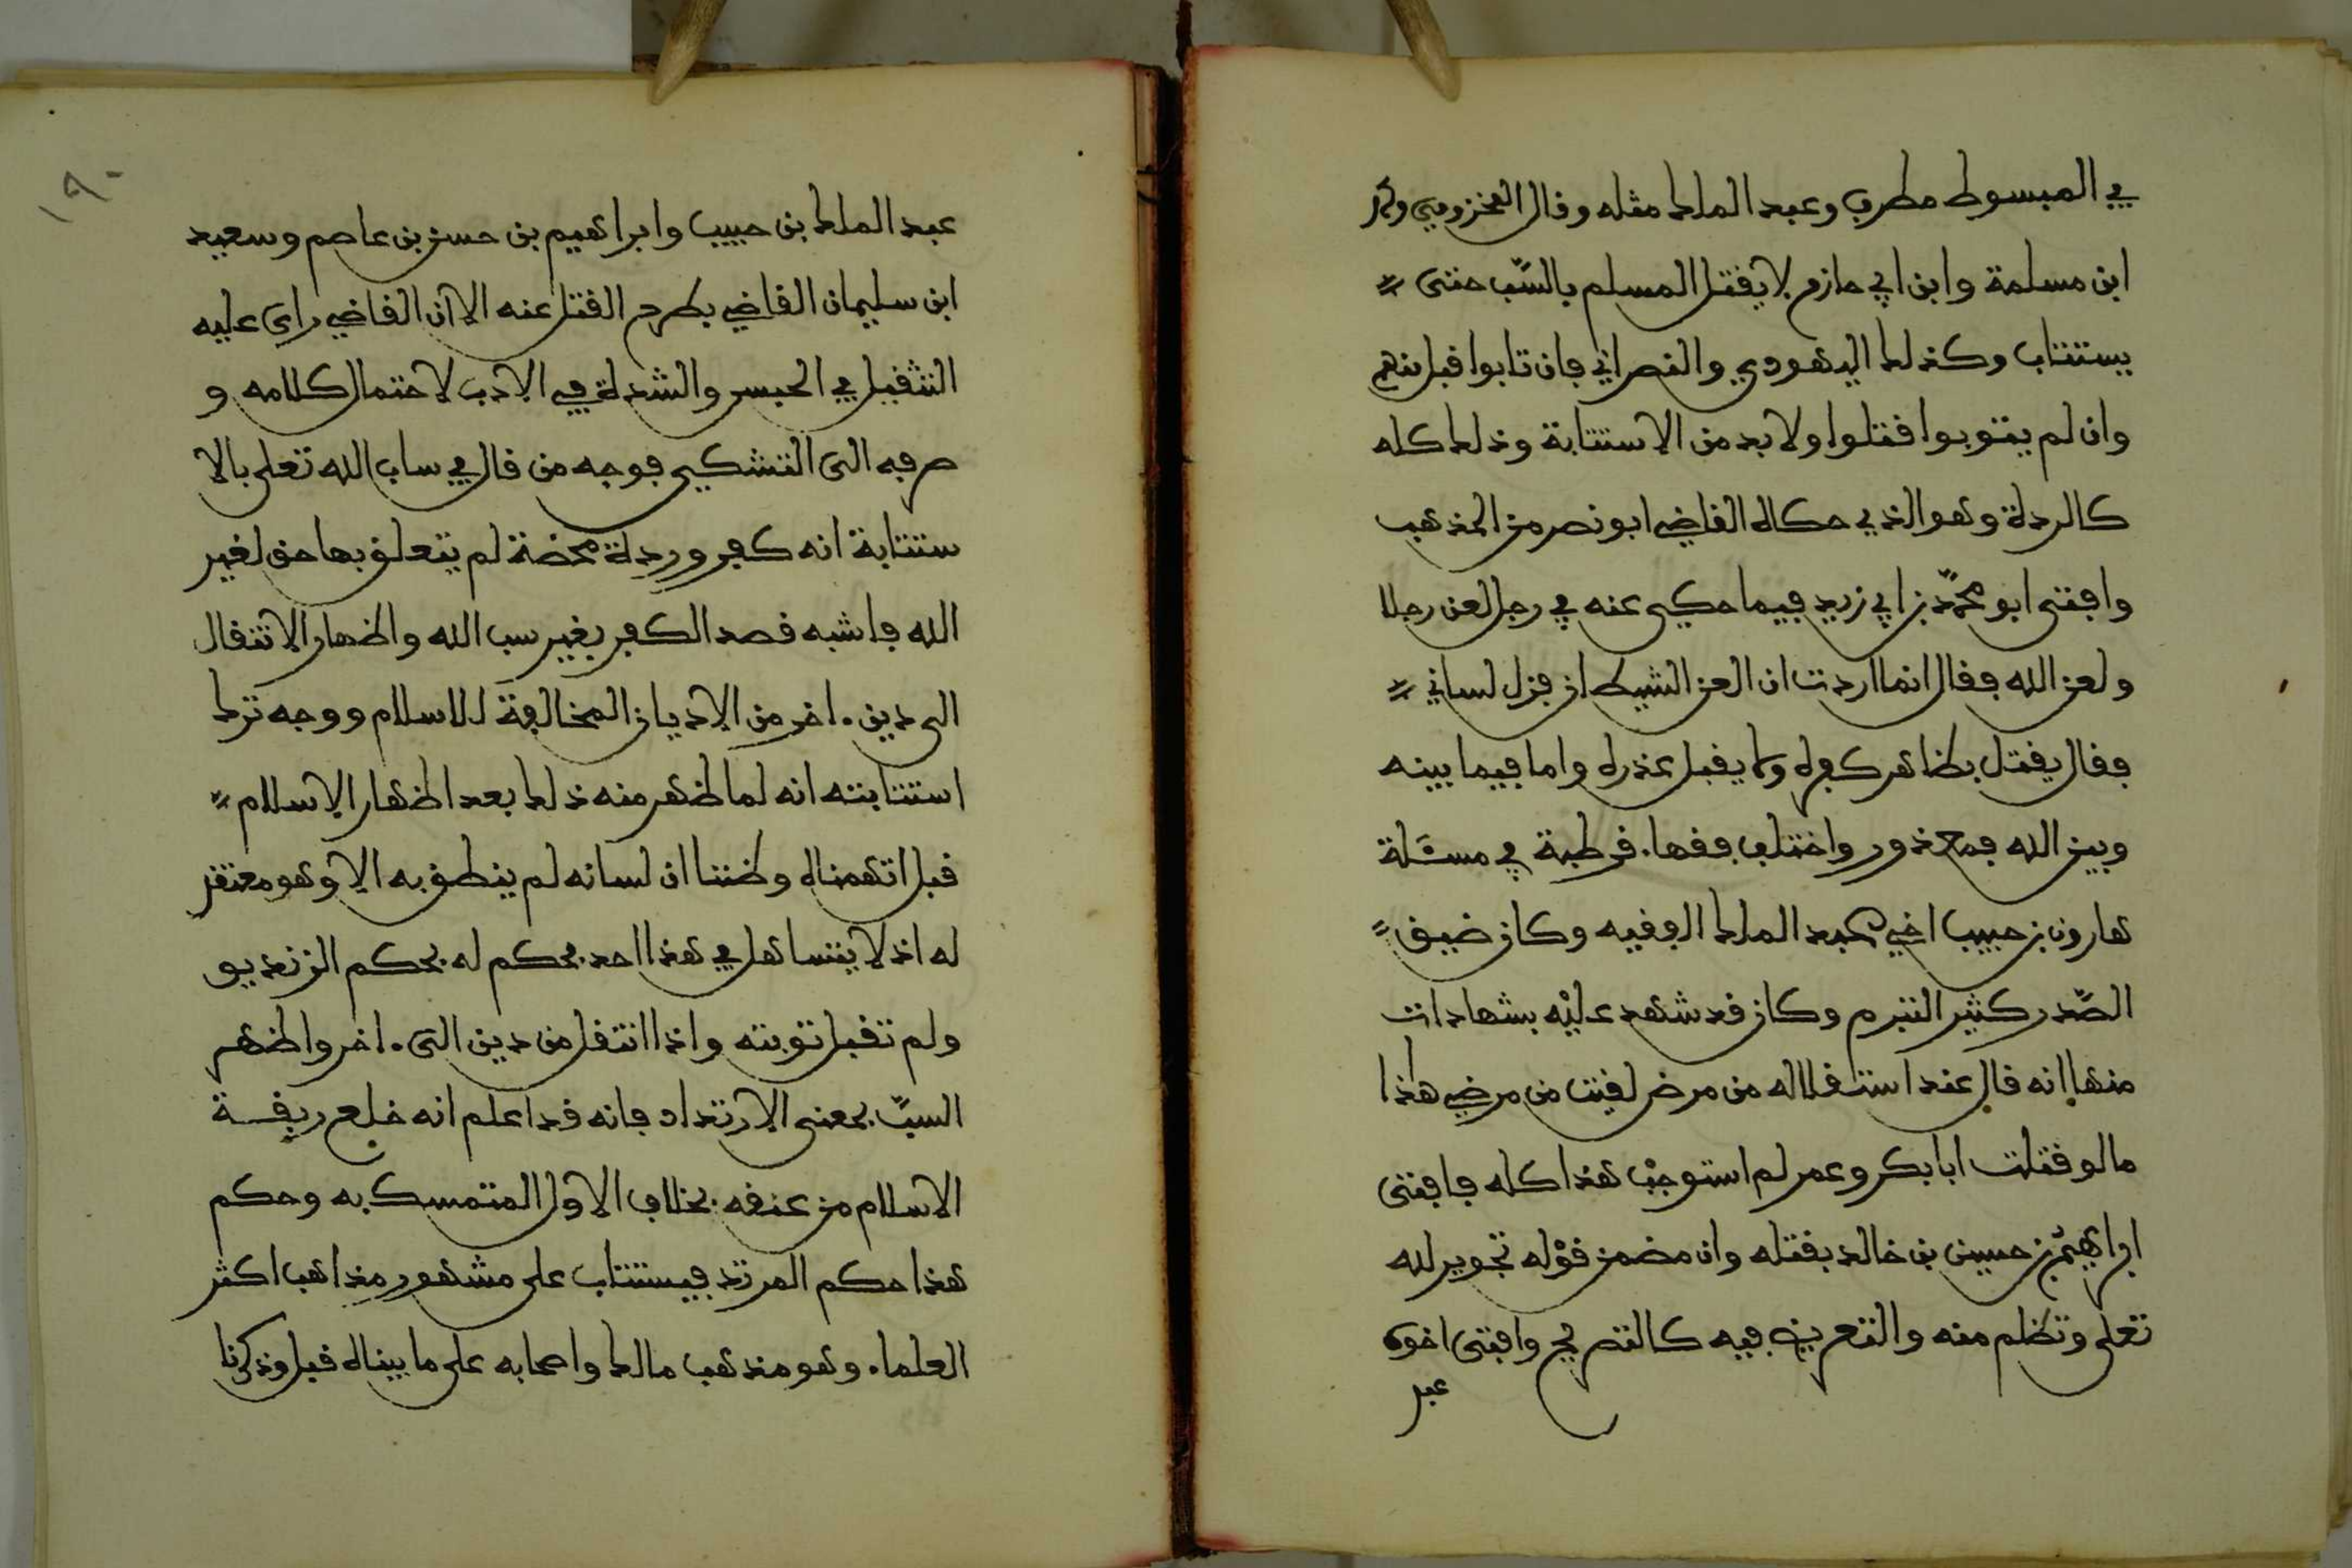 في المبسوط مطرف وعبد الملك مثله وقال المخزومي ومحمد
ابن مسلمة وابن ابي حازم لا يقتل المسلم بالسّب حتى
يستتاب وكذلك اليهودي والنصراني فان تابوا قبل منهم
وان لم يتوبوا قتلوا ولا بد من الاستتابة وذلك كله
كالردة وهو الذي حكاه القاضي ابو نصر من المذهب
وافتى ابو محمّد بن ابي زيد فيما حكي عنه في رجل لعن رجلا
ولعن الله فقال انما اردت ان العن الشيطان فزل لساني
فقال يقتل بظاهر كفره ولا يقبل عذره واما فيما بينه
وبين الله فمعذور واختلف فقهاء قرطبة في مسئلة
هارون بن حبيب اخي عبد الملك الفقيه وكان ضيق
الصّدر كثير التبرم وكان قد شهد عليه بشهادات
منها انه قال عند استقلاله من مرض لقيت من مرضي هاذا
ما لو قتلت ابا بكر وعمر لم استوجب هذا كله فافتى
ابراهيم بن حسين بن خالد بقتله وان مضمن قوله تجوير لله
تعلى وتظلم منه والتعريض فيه كالتصريح وافتى اخوه
عبد
١٩٠
عبد الملك بن حبيب وابراهيم بن حسن بن عاصم وسعيد
ابن سليمان القاضي بطرح القتل عنه الا ان القاضي راى عليه
التثقيل في الحبس والشدة في الادب لاحتمال كلامه و
صرفه الى التشكي فوجه من قال في ساب الله تعلى بالا
ستتابة انه كفر وردة محضة لم يتعلق بها حق لغير
الله فاشبه قصد الكفر بغير سب الله واظهار الانتقال
الى دين ءاخر من الاديان المخالفة للاسلام ووجه ترك
استتابته انه لما ظهر منه ذلك بعد اظهار الاسلام
قبل اتهمناه وظننا ان لسانه لم ينطق به الا وهو معتقد
له اذ لا يتساهل في هذا احد فحكم له بحكم الزنديق
ولم تقبل توبته واذا انتقل من دين الى ءاخر واظهر
السبّ بمعنى الارتداد فانه قد اعلم انه خلع ربقة
الاسلام من عنقه بخلاف الاول المتمسك به وحكم
هذا حكم المرتد فيستتاب على مشهور مذاهب اكثر
العلماء وهو مذهب مالك واصحابه على ما بيناه قبل وذكرنا